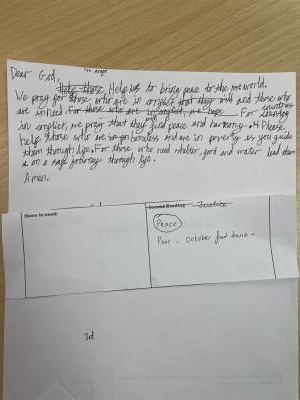 Dear God,
Help us to bring peace to the world.
We pray for those who are in conflict and those who
are in need. For those who are in conflict, we hope For countries
in conflict, we pray that they find peace and harmony. Please
help those who are homeless and are in poverty guide
them through life. For those who need shelter, food and water lead them
on a safe journey through life.
Amen.
Those in need:
Second Reading
Peace
Poor - October food bank -